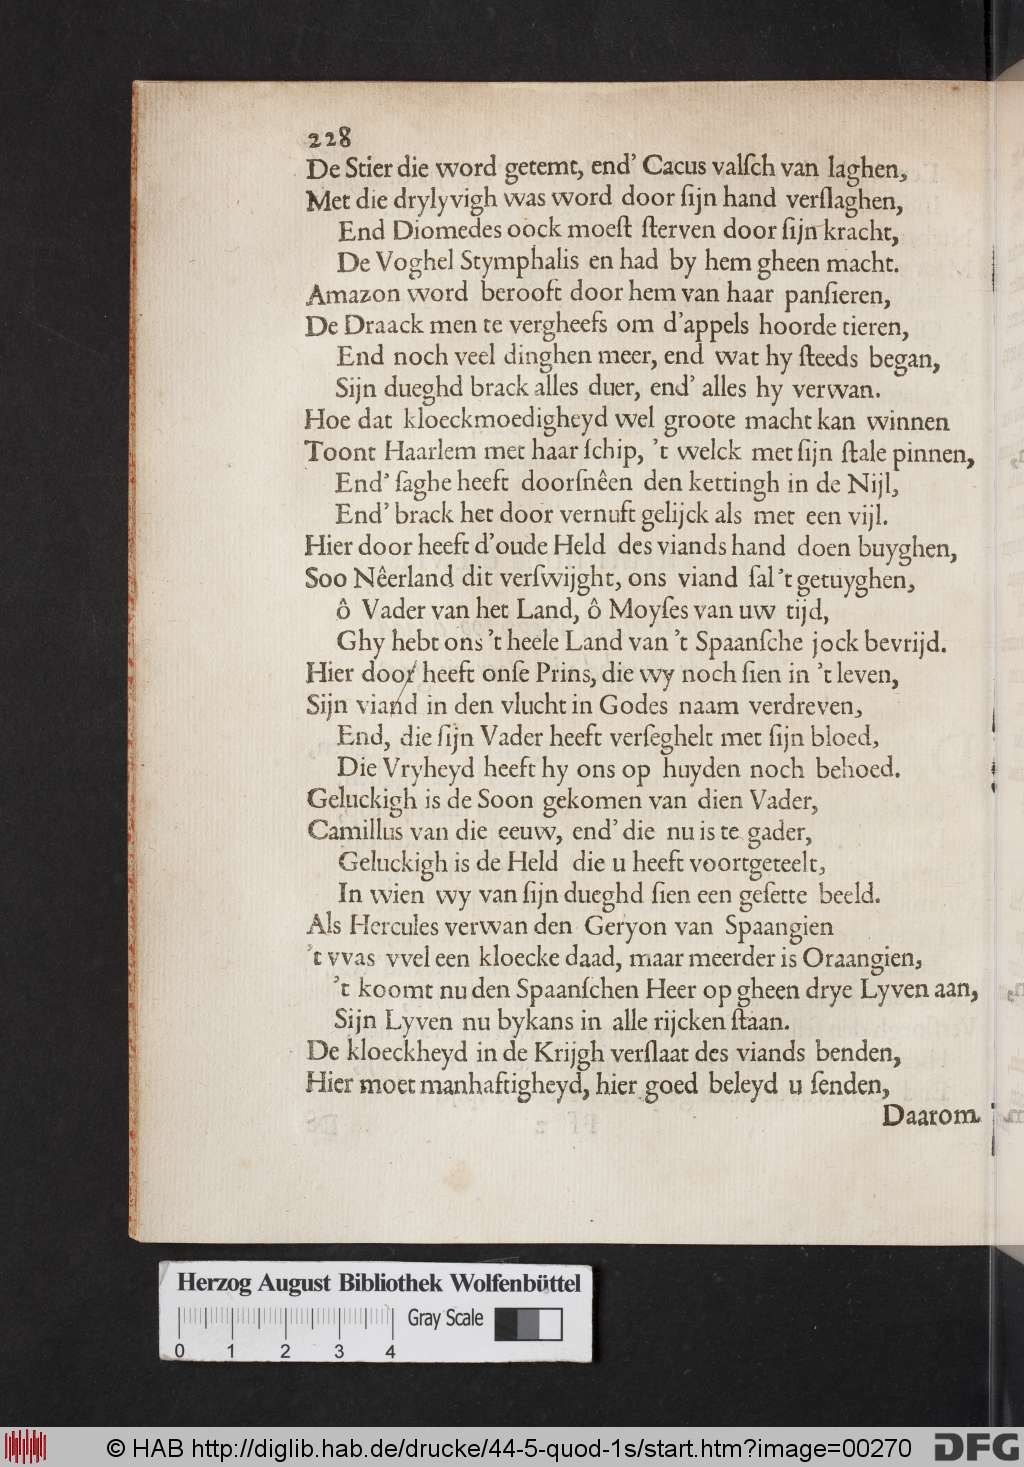 228
De Stier die word getemt, end’ Cacus valſch van laghen,
Met die drylyvigh was word door ſijn hand verſlaghen,
End Diomedes oock moeſt ſterven door ſijn kracht,
De Voghel Stymphalis en had by hem gheen macht.
Amazon word berooft door hem van haar panſieren,
De Draack men te vergheefs om d’appels hoorde tieren,
End noch veel dinghen meer, end wat hy ſteeds began,
Sijn dueghd brack alles duer, end’ alles hy verwan.
Hoe dat kloeckmoedigheyd wel groote macht kan winnen
Toont Haarlem met haar ſchip, ’t welck met ſijn ſtale pinnen,
End’ ſaghe heeft doorſnêen den kettingh in de Nijl,
End’ brack het door vernuft gelijck als met een vijl.
Hier door heeft d’oude Held des viands hand doen buyghen,
Soo Nêerland dit verſwijght, ons viand ſal ’t getuyghen,
ô Vader van het Land, ô Moyſes van uw tijd,
Ghy hebt ons ’t heele Land van ’t Spaanſche jock bevrijd.
Hier door heeft onſe Prins, die wy noch ſien in ’t leven,
Sijn viand in den vlucht in Godes naam verdreven,
End, die ſijn Vader heeft verſeghelt met ſijn bloed,
Die Vryheyd heeft hy ons op huyden noch behoed.
Geluckigh is de Soon gekomen van dien Vader,
Camillus van die eeuw, end’ die nu is te gader,
Geluckigh is de Held die u heeft voortgeteelt,
In wien wy van ſijn dueghd ſien een geſette beeld.
Als Hercules verwan den Geryon van Spaangien
’t vvas vvel een kloecke daad, maar meerder is Oraangien,
’t koomt nu den Spaanſchen Heer op gheen drye Lyven aan,
Sijn Lyven nu bykans in alle rijcken ſtaan.
De kloeckheyd in de Krijgh verſlaat des viands benden,
Hier moet manhaftigheyd, hier goed beleyd u ſenden,
Daarom
Herzog August Bibliothek Wolfenbüttel
Gray Scale
0 1 2 3 4
© HAB http://diglib.hab.de/drucke/44-5-quod-1s/start.htm?image=00270
DFG